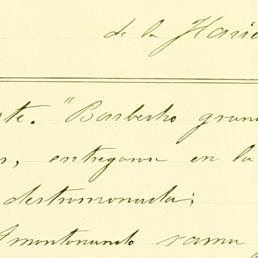 de la Haci
te. "Barbecho gran
s, entregaron en la
destroncada;
Amontonando rama